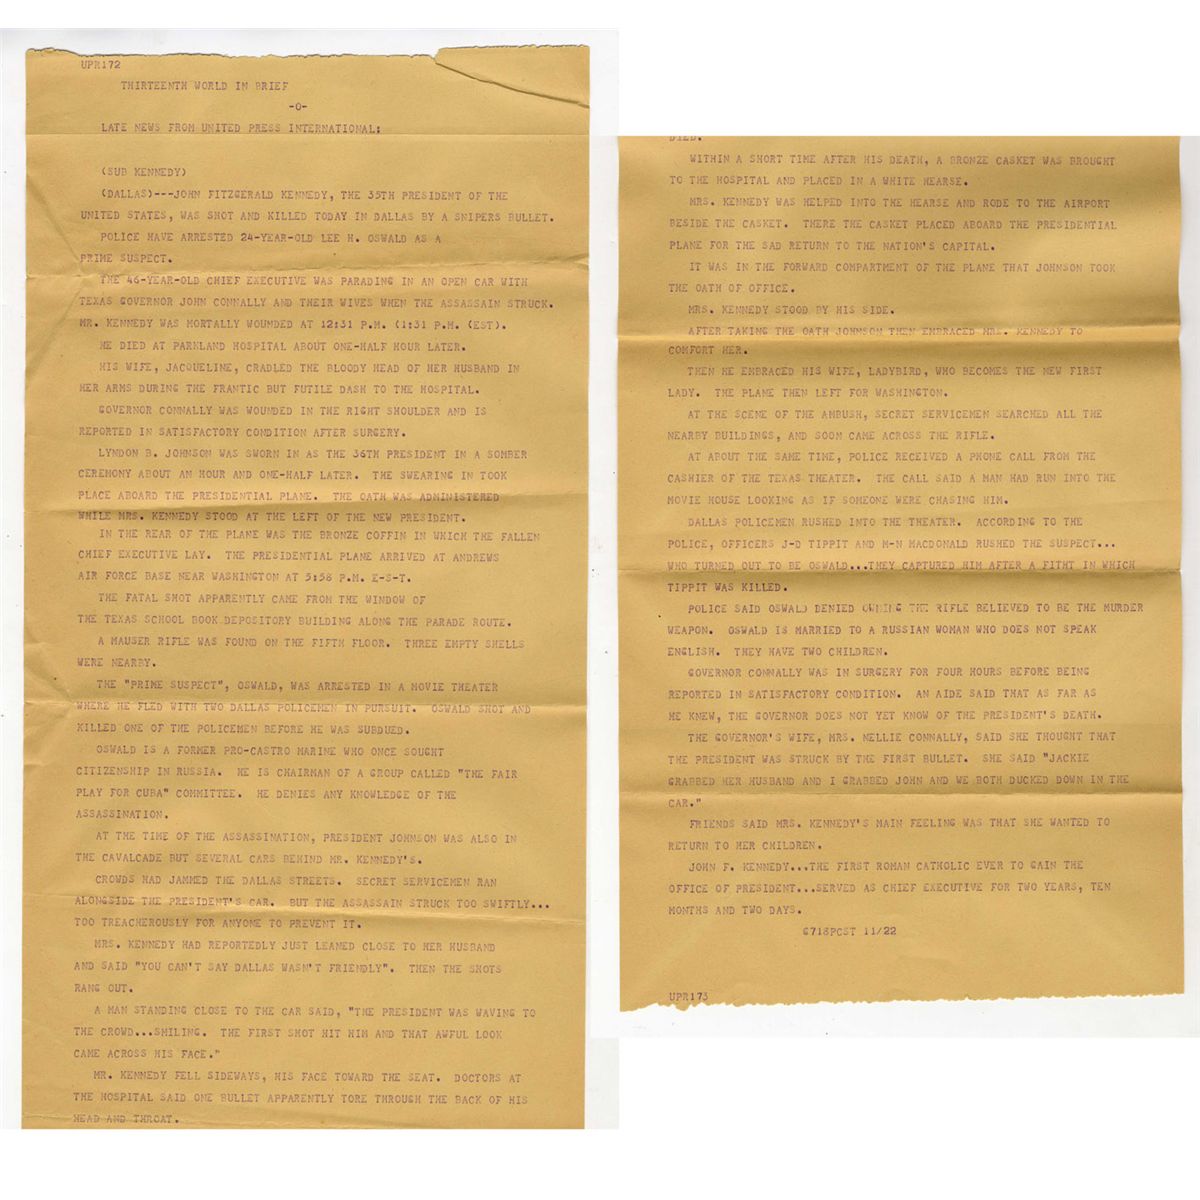 UPR172
THIRTEENTH WORLD IN BRIEF
-0-
LATE NEWS FROM UNITED PRESS INTERNATIONAL:
(SUB KENNEDY)
(DALLAS)---JOHN FITZGERALD KENNEDY, THE 35TH PRESIDENT OF THE
UNITED STATES, WAS SHOT AND KILLED TODAY IN DALLAS BY A SNIPERS BULLET.
POLICE HAVE ARRESTED 24-YEAR-OLD LEE H. OSWALD AS A
PRIME SUSPECT.
THE 46-YEAR-OLD CHIEF EXECUTIVE WAS PARADING IN AN OPEN CAR WITH
TEXAS GOVERNOR JOHN CONNALLY AND THEIR WIVES WHEN THE ASSASSAIN STRUCK.
MR. KENNEDY WAS MORTALLY WOUNDED AT 12:31 P.M. (1:31 P.M. (EST).
HE DIED AT PARKLAND HOSPITAL ABOUT ONE-HALF HOUR LATER.
HIS WIFE, JACQUELINE, CRADLED THE BLOODY HEAD OF HER HUSBAND IN
HER ARMS DURING THE FRANTIC BUT FUTILE DASH TO THE HOSPITAL.
GOVERNOR CONNALLY WAS WOUNDED IN THE RIGHT SHOULDER AND IS
REPORTED IN SATISFACTORY CONDITION AFTER SURGERY.
LYNDON B. JOHNSON WAS SWORN IN AS THE 36TH PRESIDENT IN A SOMBER
CEREMONY ABOUT AN HOUR AND ONE-HALF LATER. THE SWEARING IN TOOK
PLACE ABOARD THE PRESIDENTIAL PLANE. THE OATH WAS ADMINISTERED
WHILE MRS. KENNEDY STOOD AT THE LEFT OF THE NEW PRESIDENT.
IN THE REAR OF THE PLANE WAS THE BRONZE COFFIN IN WHICH THE FALLEN
CHIEF EXECUTIVE LAY. THE PRESIDENTIAL PLANE ARRIVED AT ANDREWS
AIR FORCE BASE NEAR WASHINGTON AT 5:58 P.M. E-S-T.
THE FATAL SHOT APPARENTLY CAME FROM THE WINDOW OF
THE TEXAS SCHOOL BOOK DEPOSITORY BUILDING ALONG THE PARADE ROUTE.
A MAUSER RIFLE WAS FOUND ON THE FIFTH FLOOR. THREE EMPTY SHELLS
WERE NEARBY.
THE "PRIME SUSPECT", OSWALD, WAS ARRESTED IN A MOVIE THEATER
WHERE HE FLED WITH TWO DALLAS POLICEMEN IN PURSUIT. OSWALD SHOT AND
KILLED ONE OF THE POLICEMEN BEFORE HE WAS SUBDUED.
OSWALD IS A FORMER PRO-CASTRO MARINE WHO ONCE SOUGHT
CITIZENSHIP IN RUSSIA. HE IS CHAIRMAN OF A GROUP CALLED "THE FAIR
PLAY FOR CUBA" COMMITTEE. HE DENIES ANY KNOWLEDGE OF THE
ASSASSINATION.
AT THE TIME OF THE ASSASSINATION, PRESIDENT JOHNSON WAS ALSO IN
THE CAVALCADE BUT SEVERAL CARS BEHIND MR. KENNEDY'S.
CROWDS HAD JAMMED THE DALLAS STREETS. SECRET SERVICEMEN RAN
ALONGSIDE THE PRESIDENT'S CAR. BUT THE ASSASSAIN STRUCK TOO SWIFTLY...
TOO TREACHEROUSLY FOR ANYONE TO PREVENT IT.
MRS. KENNEDY HAD REPORTEDLY JUST LEANED CLOSE TO HER HUSBAND
AND SAID "YOU CAN'T SAY DALLAS WASN'T FRIENDLY". THEN THE SHOTS
RANG OUT.
A MAN STANDING CLOSE TO THE CAR SAID, "THE PRESIDENT WAS WAVING TO
THE CROWD...SMILING. THE FIRST SHOT HIT HIM AND THAT AWFUL LOOK
CAME ACROSS HIS FACE."
MR. KENNEDY FELL SIDEWAYS, HIS FACE TOWARD THE SEAT. DOCTORS AT
THE HOSPITAL SAID ONE BULLET APPARENTLY TORE THROUGH THE BACK OF HIS
HEAD AND THROAT.
DIED.
WITHIN A SHORT TIME AFTER HIS DEATH, A BRONZE CASKET WAS BROUGHT
TO THE HOSPITAL AND PLACED IN A WHITE HEARSE.
MRS. KENNEDY WAS HELPED INTO THE HEARSE AND RODE TO THE AIRPORT
BESIDE THE CASKET. THERE THE CASKET PLACED ABOARD THE PRESIDENTIAL
PLANE FOR THE SAD RETURN TO THE NATION'S CAPITAL.
IT WAS IN THE FORWARD COMPARTMENT OF THE PLANE THAT JOHNSON TOOK
THE OATH OF OFFICE.
MRS. KENNEDY STOOD BY HIS SIDE.
AFTER TAKING THE OATH JOHNSON THEN EMBRACED MRS. KENNEDY TO
COMFORT HER.
THEN HE EMBRACED HIS WIFE, LADYBIRD, WHO BECOMES THE NEW FIRST
LADY. THE PLANE THEN LEFT FOR WASHINGTON.
AT THE SCENE OF THE AMBUSH, SECRET SERVICEMEN SEARCHED ALL THE
NEARBY BUILDINGS, AND SOON CAME ACROSS THE RIFLE.
AT ABOUT THE SAME TIME, POLICE RECEIVED A PHONE CALL FROM THE
CASHIER OF THE TEXAS THEATER. THE CALL SAID A MAN HAD RUN INTO THE
MOVIE HOUSE LOOKING AS IF SOMEONE WERE CHASING HIM.
DALLAS POLICEMEN RUSHED INTO THE THEATER. ACCORDING TO THE
POLICE, OFFICERS J-D TIPPIT AND M-N MACDONALD RUSHED THE SUSPECT...
WHO TURNED OUT TO BE OSWALD...THEY CAPTURED HIM AFTER A FITHT IN WHICH
TIPPIT WAS KILLED.
POLICE SAID OSWALD DENIED OWNING THE RIFLE BELIEVED TO BE THE MURDER
WEAPON. OSWALD IS MARRIED TO A RUSSIAN WOMAN WHO DOES NOT SPEAK
ENGLISH. THEY HAVE TWO CHILDREN.
GOVERNOR CONNALLY WAS IN SURGERY FOR FOUR HOURS BEFORE BEING
REPORTED IN SATISFACTORY CONDITION. AN AIDE SAID THAT AS FAR AS
HE KNEW, THE GOVERNOR DOES NOT YET KNOW OF THE PRESIDENT'S DEATH.
THE GOVERNOR'S WIFE, MRS. NELLIE CONNALLY, SAID SHE THOUGHT THAT
THE PRESIDENT WAS STRUCK BY THE FIRST BULLET. SHE SAID "JACKIE
GRABBED HER HUSBAND AND I GRABBED JOHN AND WE BOTH DUCKED DOWN IN THE
CAR."
FRIENDS SAID MRS. KENNEDY'S MAIN FEELING WAS THAT SHE WANTED TO
RETURN TO HER CHILDREN.
JOHN F. KENNEDY...THE FIRST ROMAN CATHOLIC EVER TO GAIN THE
OFFICE OF PRESIDENT...SERVED AS CHIEF EXECUTIVE FOR TWO YEARS, TEN
MONTHS AND TWO DAYS.
G718PCST 11/22
UPR173